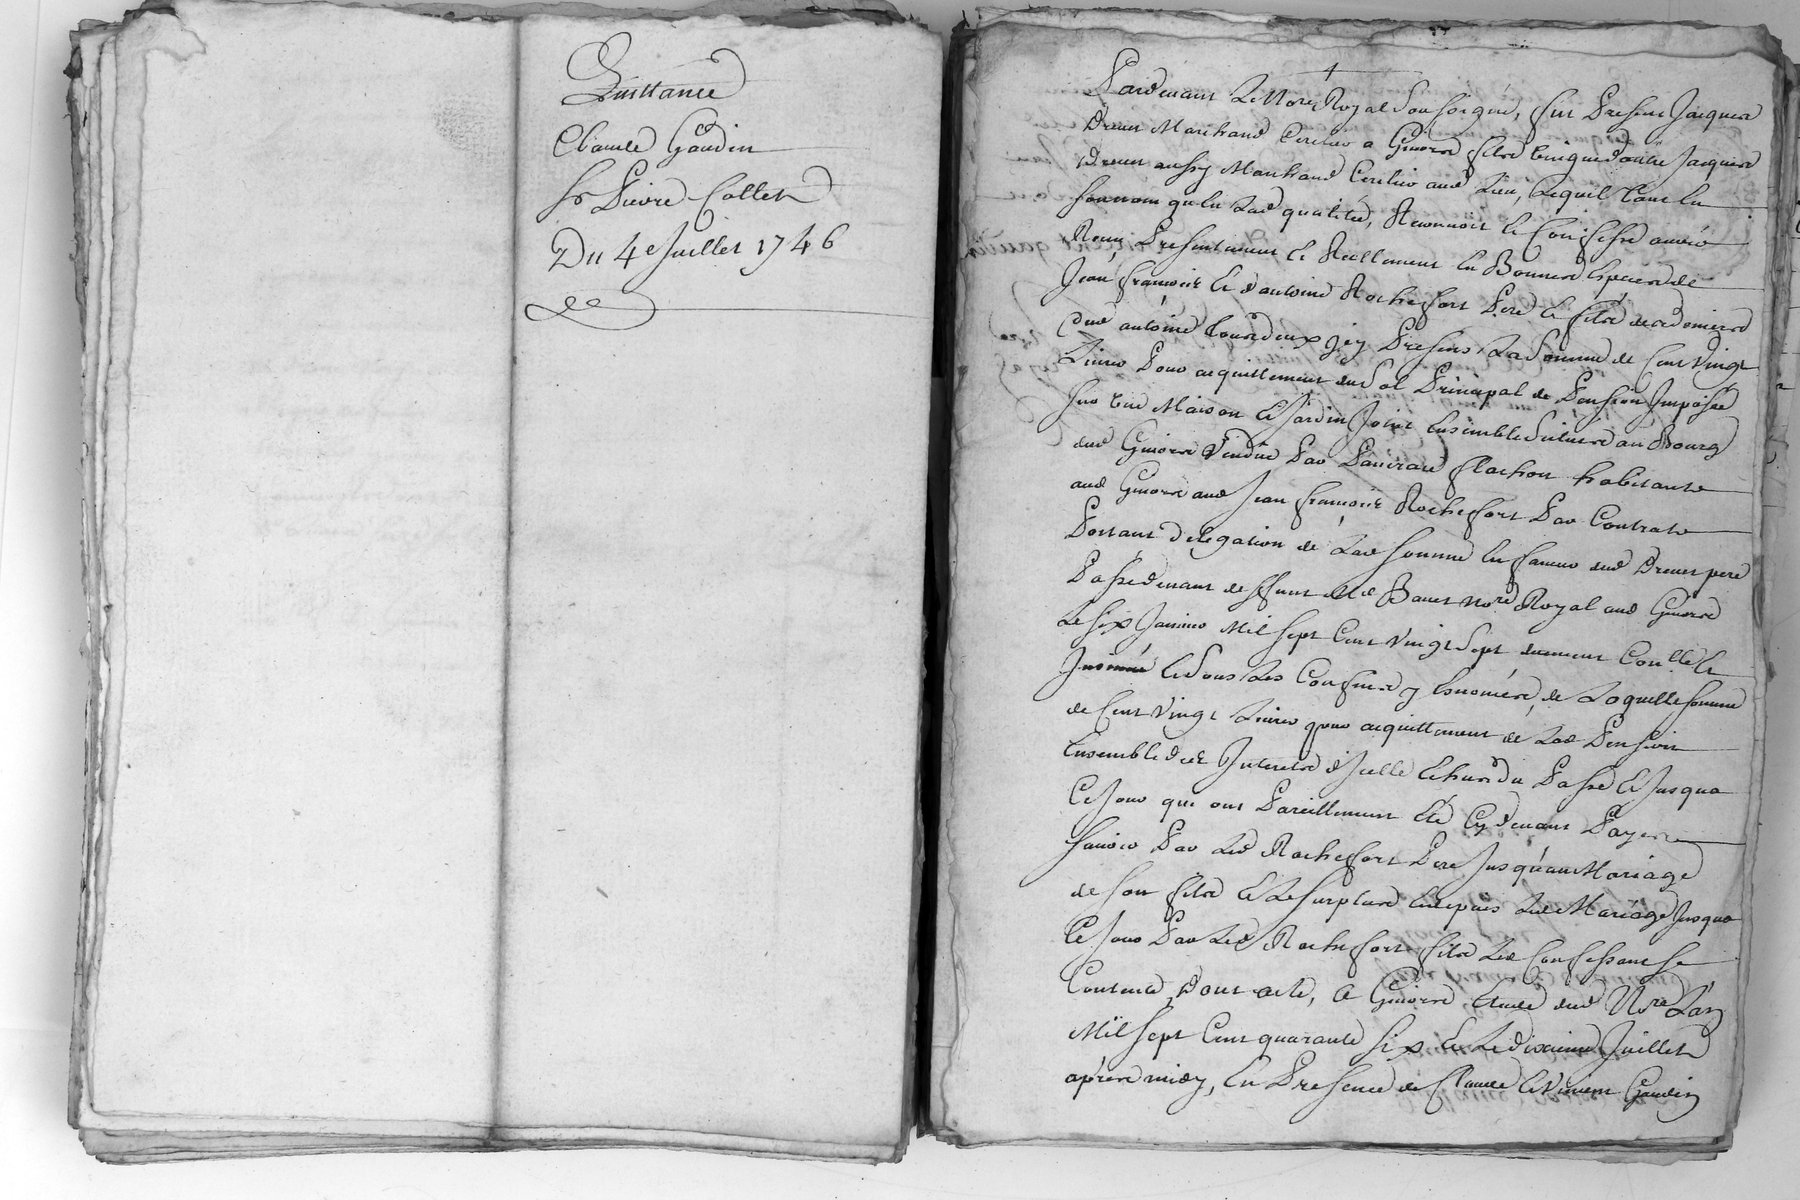 Quittance
Claude Gaudin
Sr Pierre Collet
Du 4e Juillet 1746
Pardevant Le Nore Royal Soussigné, fut Present Jacques
Dreuet Marchand a Givors fils d'autre Jacques
Dreuet aussy Marchand aud Lieu, Lequel tant En
son nom qu'En Lad qualitée, Reconnoit Et Confesse avoir
Reçeu Presentement Et Reellement En Bonnes Especes de
Jean françois Et d'antoine Rochefort Pere Et fils de ce dernier
Et aud antoine Tous deux Icy Presens La Somme de Cent Vingt
Livres Pour acquittement du Sol Principal de Pension Imposée
sur une Maison Et Jardin Joint Ensemble Situees au Bourg
dud Givors Vendue Par flachon habitante
aud Givors aud Jean françois Rochefort Par Contrat
Portant delegation de Lad somme En faveur dud Dreuet pere
Passé devant deffunt Me Bauet nore Royal aud Givors
Le six Janvier Mil sept Cent Vingt Sept duement Conllé Et
Insinué Et Sous Les Confins y Enoncéee, de Laquelle somme
de Cent Vingt Livres pour acquittement de Lad Pension
Ensemble des Interets d'Icelle Echus du Passé Et Jusqua
Ce Jour qui ont Pareillement Eté Cy devant Payes
Sçavoir Par Led Rochefort Pere Jusqu'au Mariage
de son fils Et Le surplus Ledit Mariage Jusqua
Ce Jour Par Led Rochefort fils Led Confessant se
Contente, Dont acte, a Givors, Etude dud Nore L'an
Mil sept Cent quarante six Et Le dixieme Juillet
apres midy, En Presence de Claude Et Vincent Gaudin